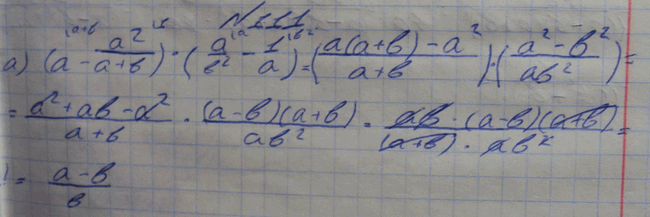 №111
а) (a - a²/a+b) · (a/b² - 1/a) = (a(a+b) - a²/a+b) · (a² - b²/ab²) =
= a² + ab - a²/a+b · (a-b)(a+b)/ab² = ab · (a-b)(a+b)/(a+b) · ab² =
= a-b/b